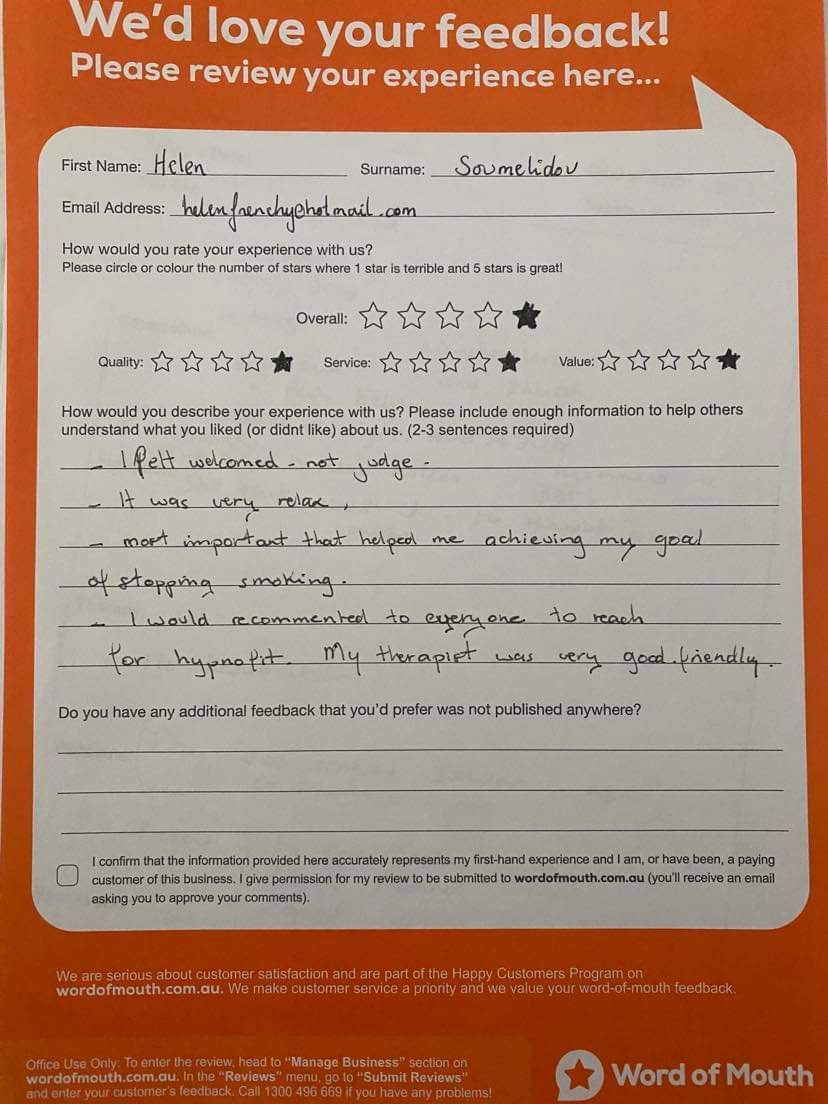 We'd love your feedback!
Please review your experience here...
First Name: Helen Surname: Soumelidou
Email Address: helenfrenchy@hotmail.com
How would you rate your experience with us?
Please circle or colour the number of stars where 1 star is terrible and 5 stars is great!
Overall:
Quality: Service: Value:
How would you describe your experience with us? Please include enough information to help others
understand what you liked (or didnt like) about us. (2-3 sentences required)
- I felt welcomed - not judge -
- It was very relax,
- most important that helped me achieving my goal
of stopping smoking.
- I would recommented to everyone to reach
for hypnofit. My therapist was very good.friendly.
Do you have any additional feedback that you'd prefer was not published anywhere?
I confirm that the information provided here accurately represents my first-hand experience and I am, or have been, a paying
customer of this business. I give permission for my review to be submitted to wordofmouth.com.au (you'll receive an email
asking you to approve your comments).
We are serious about customer satisfaction and are part of the Happy Customers Program on
wordofmouth.com.au. We make customer service a priority and we value your word-of-mouth feedback.
Office Use Only: To enter the review, head to "Manage Business" section on
wordofmouth.com.au. In the "Reviews" menu, go to "Submit Reviews"
and enter your customer's feedback. Call 1300 496 669 if you have any problems!
Word of Mouth